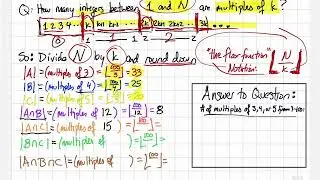 Q: How many integers between 1 and N are multiples of k?
1 2 3 4 ... k k+1 k+2 ... 2k 2k+1 2k+2 ... 3k ...
1 2
So: Divide N by k and round down
"The floor function"
Notation: ⌊N/k⌋
|A| = (multiples of 3) = ⌊100/3⌋ = 33
|B| = (multiples of 4) = ⌊100/4⌋ = 25
|C| = (multiples of 5) = ⌊100/5⌋ =
|A∩B| = (multiples of 12) = ⌊100/12⌋ = 8
|A∩C| = (multiples of 15 ) = ⌊100/ ⌋ =
|B∩C| = (multiples of ) = ⌊100/ ⌋ =
|A∩B∩C| = (multiples of ) = ⌊100/ ⌋ =
Answer to Question:
# of multiples of 3, 4, or 5 from 1-100: